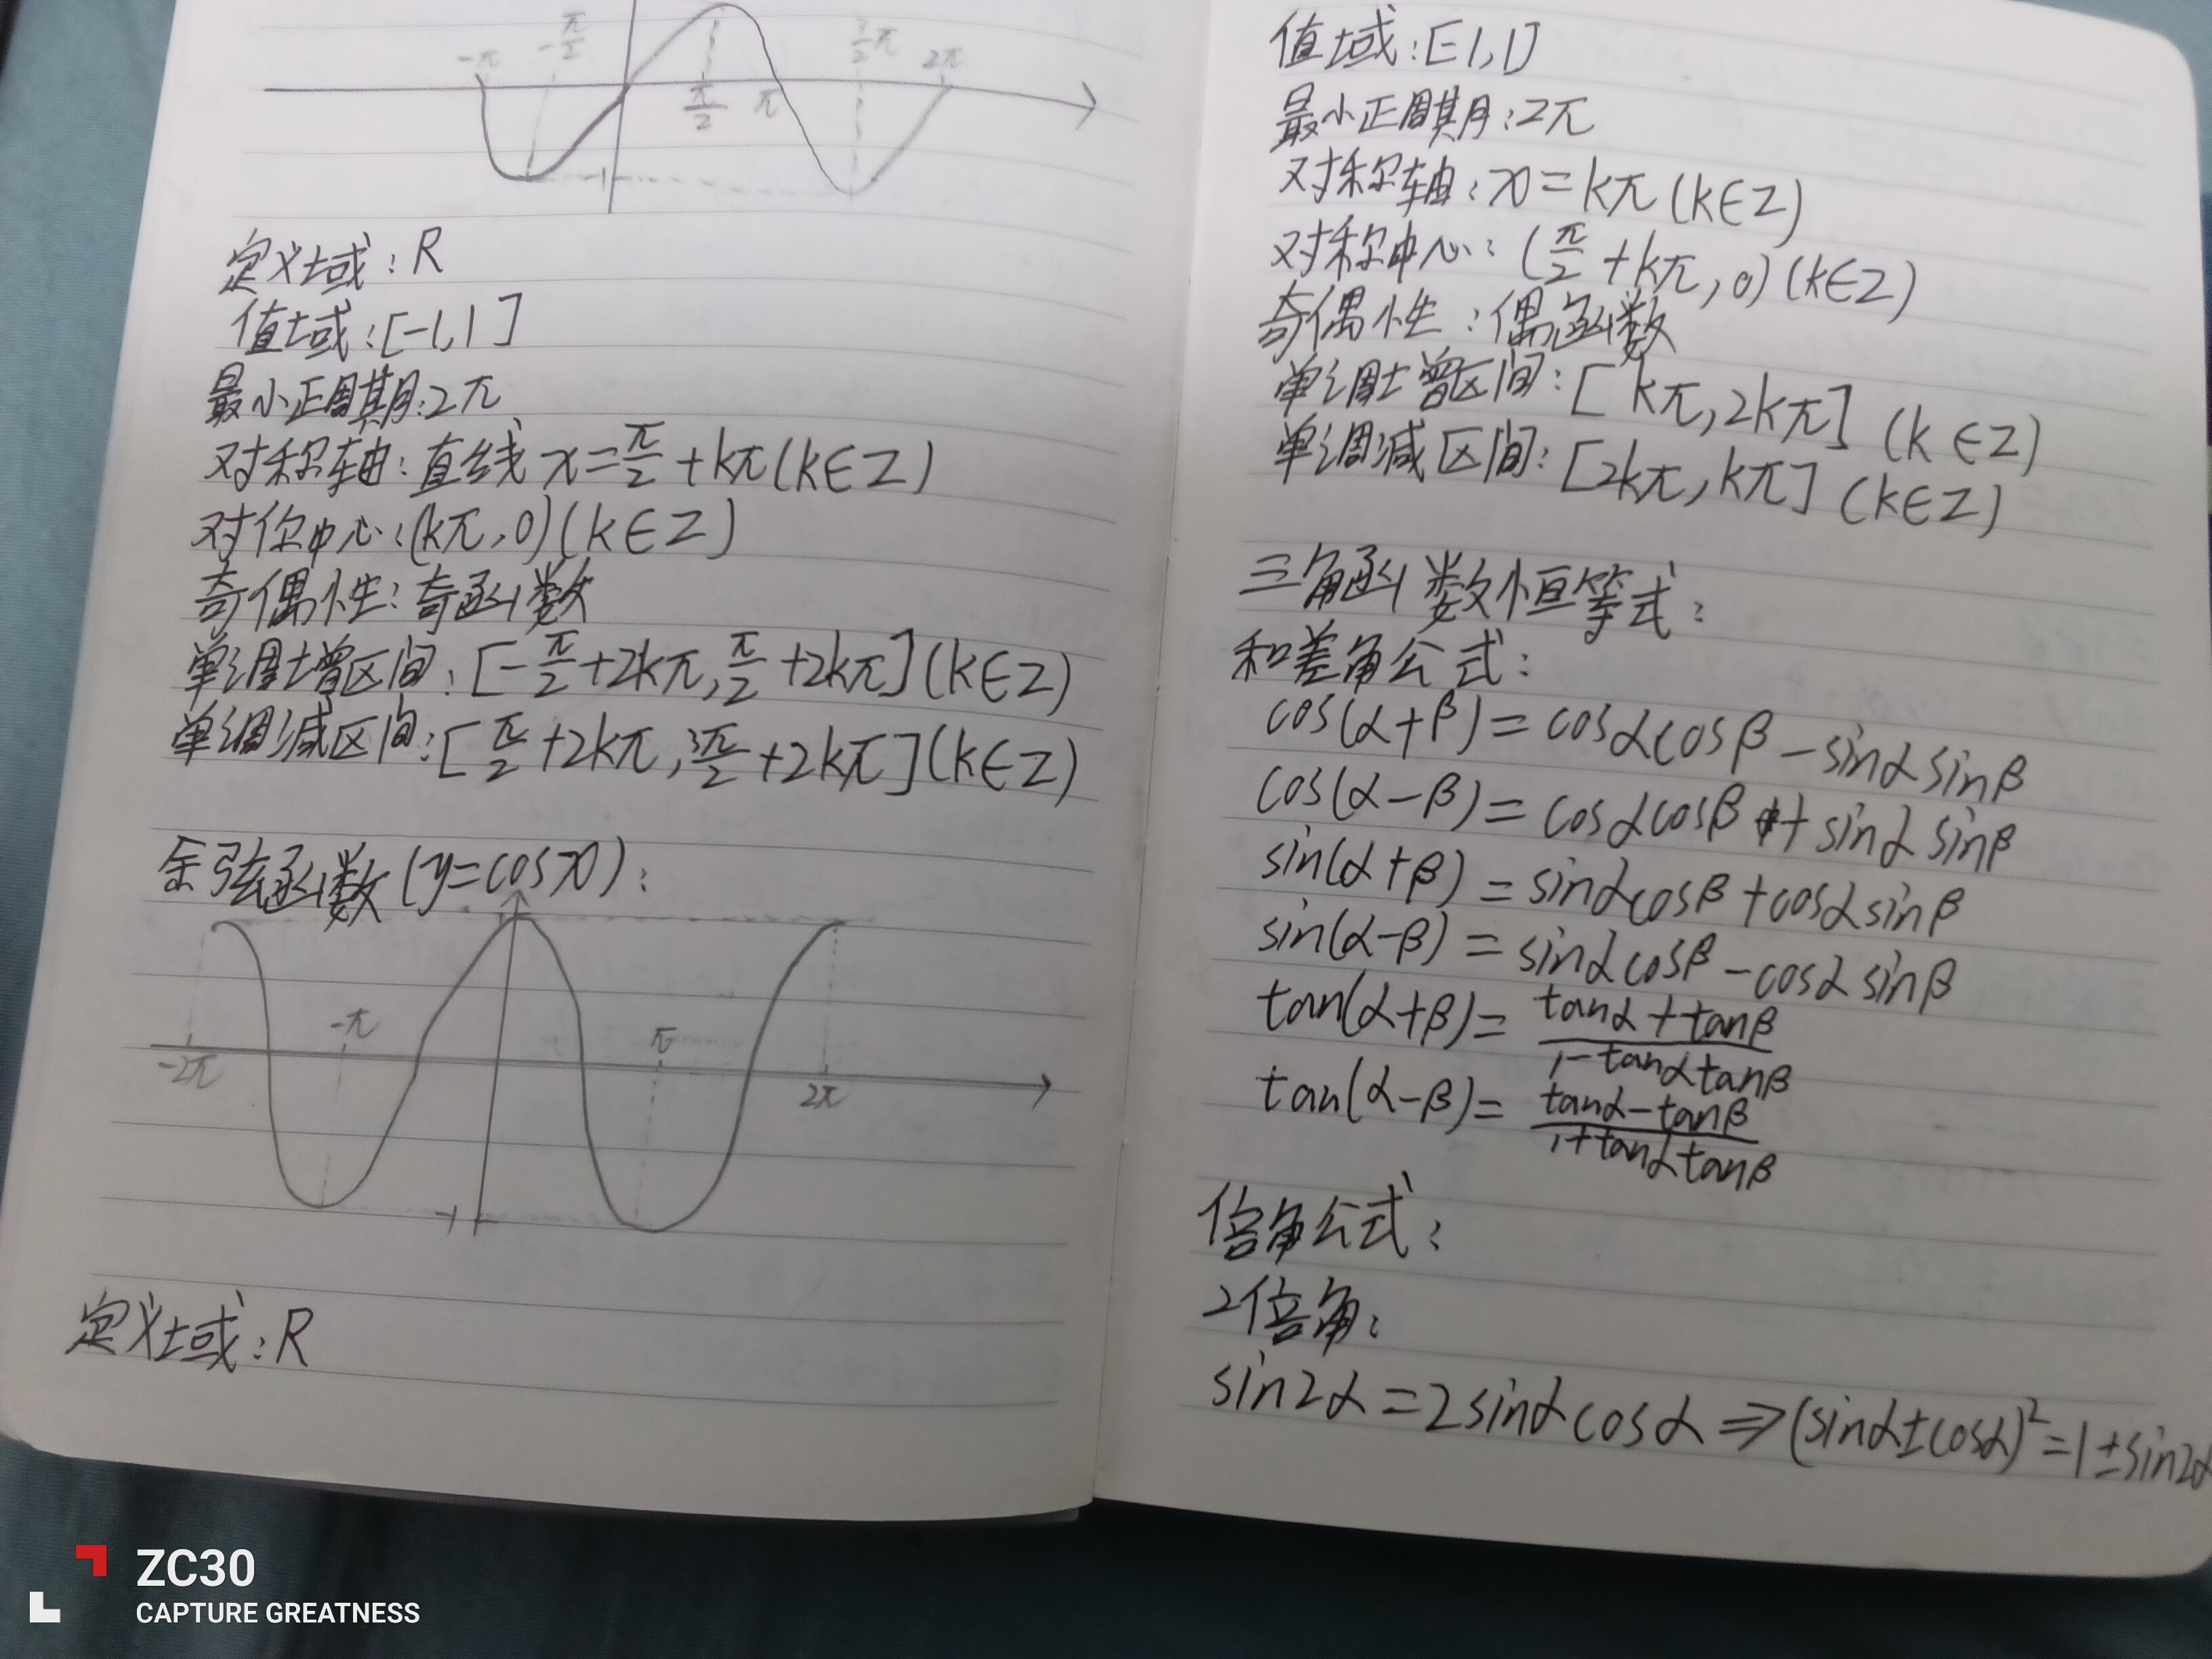 -π
-π/2
π/2
π
3/2π
2π
-1
定义域:R
值域:[-1,1]
最小正周期:2π
对称轴:直线 x=π/2+kπ(k∈Z)
对称中心:(kπ,0)(k∈Z)
奇偶性:奇函数
单调增区间:[-π/2+2kπ,π/2+2kπ](k∈Z)
单调减区间:[π/2+2kπ,3π/2+2kπ](k∈Z)
余弦函数(y=cosx):
-2π
-π
π
2π
-1
定义域:R
值域:[-1,1]
最小正周期:2π
对称轴:x=kπ(k∈Z)
对称中心:(π/2+kπ,0)(k∈Z)
奇偶性:偶函数
单调增区间:[kπ,2kπ](k∈Z)
单调减区间:[2kπ,kπ](k∈Z)
三角函数恒等式:
和差角公式:
cos(α+β)=cosαcosβ-sinαsinβ
cos(α-β)=cosαcosβ+sinαsinβ
sin(α+β)=sinαcosβ+cosαsinβ
sin(α-β)=sinαcosβ-cosαsinβ
tan(α+β)=tanα+tanβ/1-tanαtanβ
tan(α-β)=tanα-tanβ/1+tanαtanβ
倍角公式:
2倍角:
sin2α=2sinαcosα⇒(sinα±cosα)²=1±sin2α
ZC30
CAPTURE GREATNESS